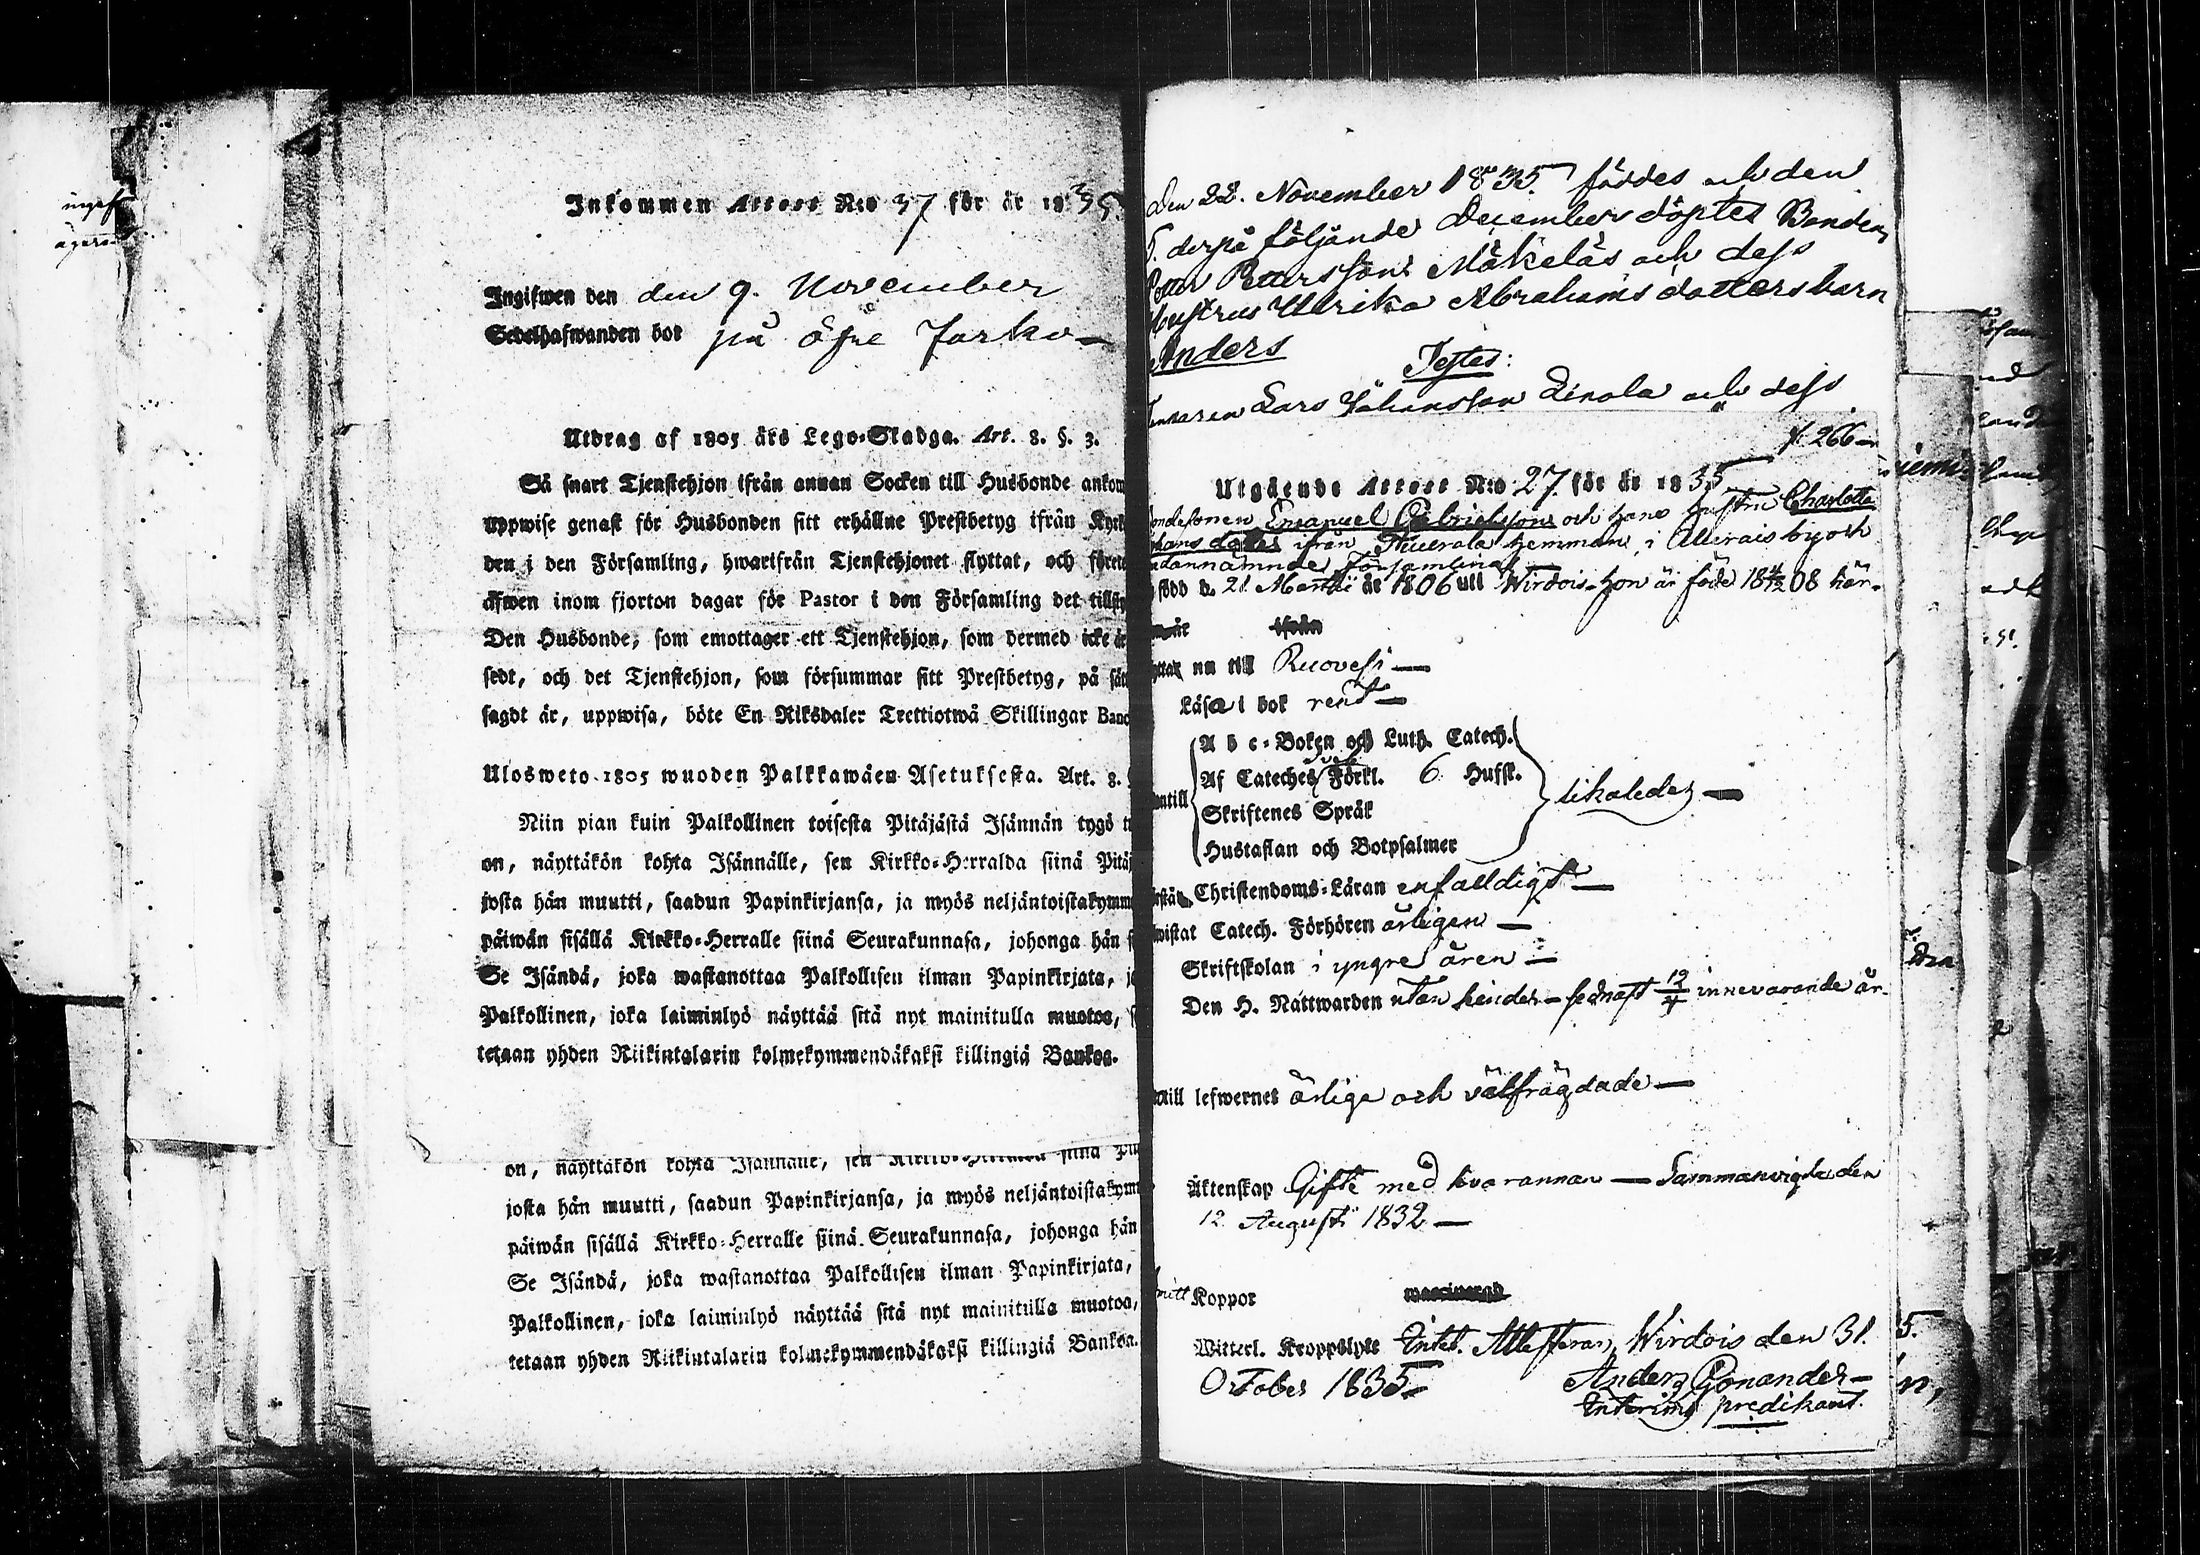 Inkommen Attest N:o 37 för år 1835.
Ingifwen den den 9. November
Sedelhafwanden bor på öfre Jarko-
Utdrag af 1805 års Lego-Stadga. Art. 8. §. 3.
Så snart Tjenstehjon ifrån annan Socken till Husbonde ankom
uppwise genast för Husbonden sitt erhållne Prestbetyg ifrån Kyrk
den i den Församling, hwarifrån Tjenstehjonet flyttat, och förete
äfwen inom fjorton dagar för Pastor i den Församling det
Den Husbonde, som emottager ett Tjenstehjon, som dermed icke är
sedt, och det Tjenstehjon, som försummar sitt Prestbetyg, på sät
sagdt är, uppwisa, böte En Riksdaler Trettiotwå Skillingar Banc
Ulosweto 1805 wuoden Palkkawäen Asetuksesta. Art. 8.
Niin pian kuin Palkollinen toisesta Pitäjästä Isännän tygö
on, näyttäkön kohta Isännälle, sen Kirkko-Herralda siinä Pitäj
josta hän muutti, saadun Papinkirjansa, ja myös neljäntoistakymm
päiwän sisällä Kirkko-Herralle siinä Seurakunnasa, johonga hän
Se Isändä, joka wastanottaa Palkollisen ilman Papinkirjata,
Palkollinen, joka laiminlyö näyttää sitä nyt mainitulla muotoa,
tetaan yhden Riikintalarin kolmekymmendäkaksi killingiä Bankoa.
on, näyttäkön kohta Isännälle, sen siinä
josta hän muutti, saadun Papinkirjansa, ja myös neljäntoistakymm
päiwän sisällä Kirkko-Herralle siinä Seurakunnasa, johonga hän
Se Isändä, joka wastanottaa Palkollisen ilman Papinkirjata,
Palkollinen, joka laiminlyö näyttää sitä nyt mainitulla muotoa,
tetaan yhden Riikintalarin kolmekymmendäkaksi killingiä Bankoa.
Den 22. November 1835 föddes och den
5. derpå följande December döptes Bonden
Petter Pettersson Mäkeläs och dess
hustrus Ulrika Abrahamsdotters barn
Anders
Testes:
Lars Johansson och dess
p. 266
Utgående Attest N:o 27. för år 1835
Emanuel Gabrielsson och hans hustru Charlotta
ifrån hemman i by och
Församling
född d. 21 Martii år 1806 uti Wirdois-hon är född 18 4/12 08 här-
ifrån
nu till Ruovesi
Läsa i bok rent
A b c-Boken och Luth. Catech.
Af Cateches Förkl. 6 Hufst.
Skriftenes Språk
Hustaflan och Botpsalmer
likaledes
Christendoms-Läran enfaldigt
Catech. Förhören årligen
Skriftskolan i yngre åren
Den H. Nattwarden utan hinder- sednast 12/4 innevarande år.
till lefwernet ärlige och välfrägdade
Äktenskap Gifte med hvarannan Sammanvigda den
12. Augusti 1832
Koppor
Witterl. Kroppslyte Intet. Attesterar, Wirdois den 31.
October 1835
Anders Gonander
Interims predikant.